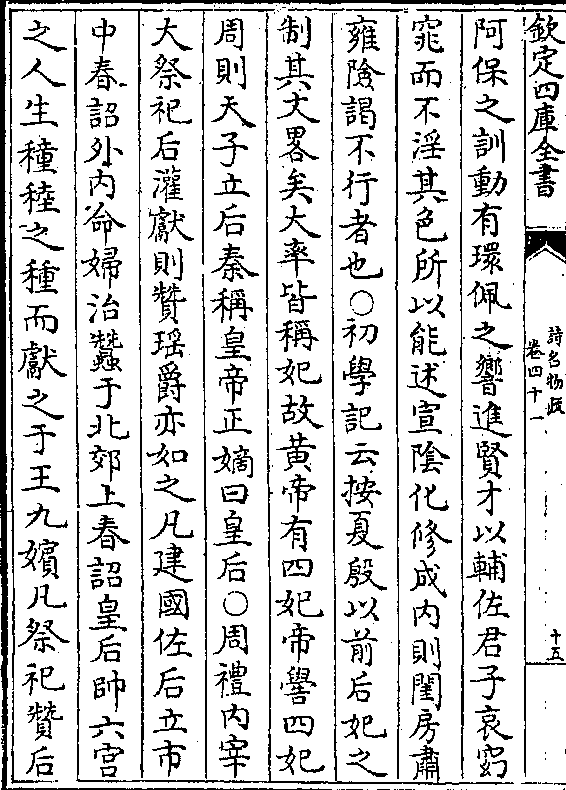 欽定四庫全書
詩名物疏
卷四十一
十五
阿保之訓動有環佩之響進賢才以輔佐君子哀窈
窕而不淫其色所以能述宣陰化修成内則閨房肅
雍險謁不行者也○初學記云按夏殷以前后妃之
制其文畧矣大率皆稱妃故黄帝有四妃帝嚳四妃
周則天子立后秦稱皇帝正嫡曰皇后○周禮内宰
大祭祀后灌獻則贊瑶爵亦如之凡建國佐后立市
中春詔外内命婦治蠶于北郊上春詔皇后帥六宫
之人生穜稑之種而獻之于王九嬪凡祭祀贊后